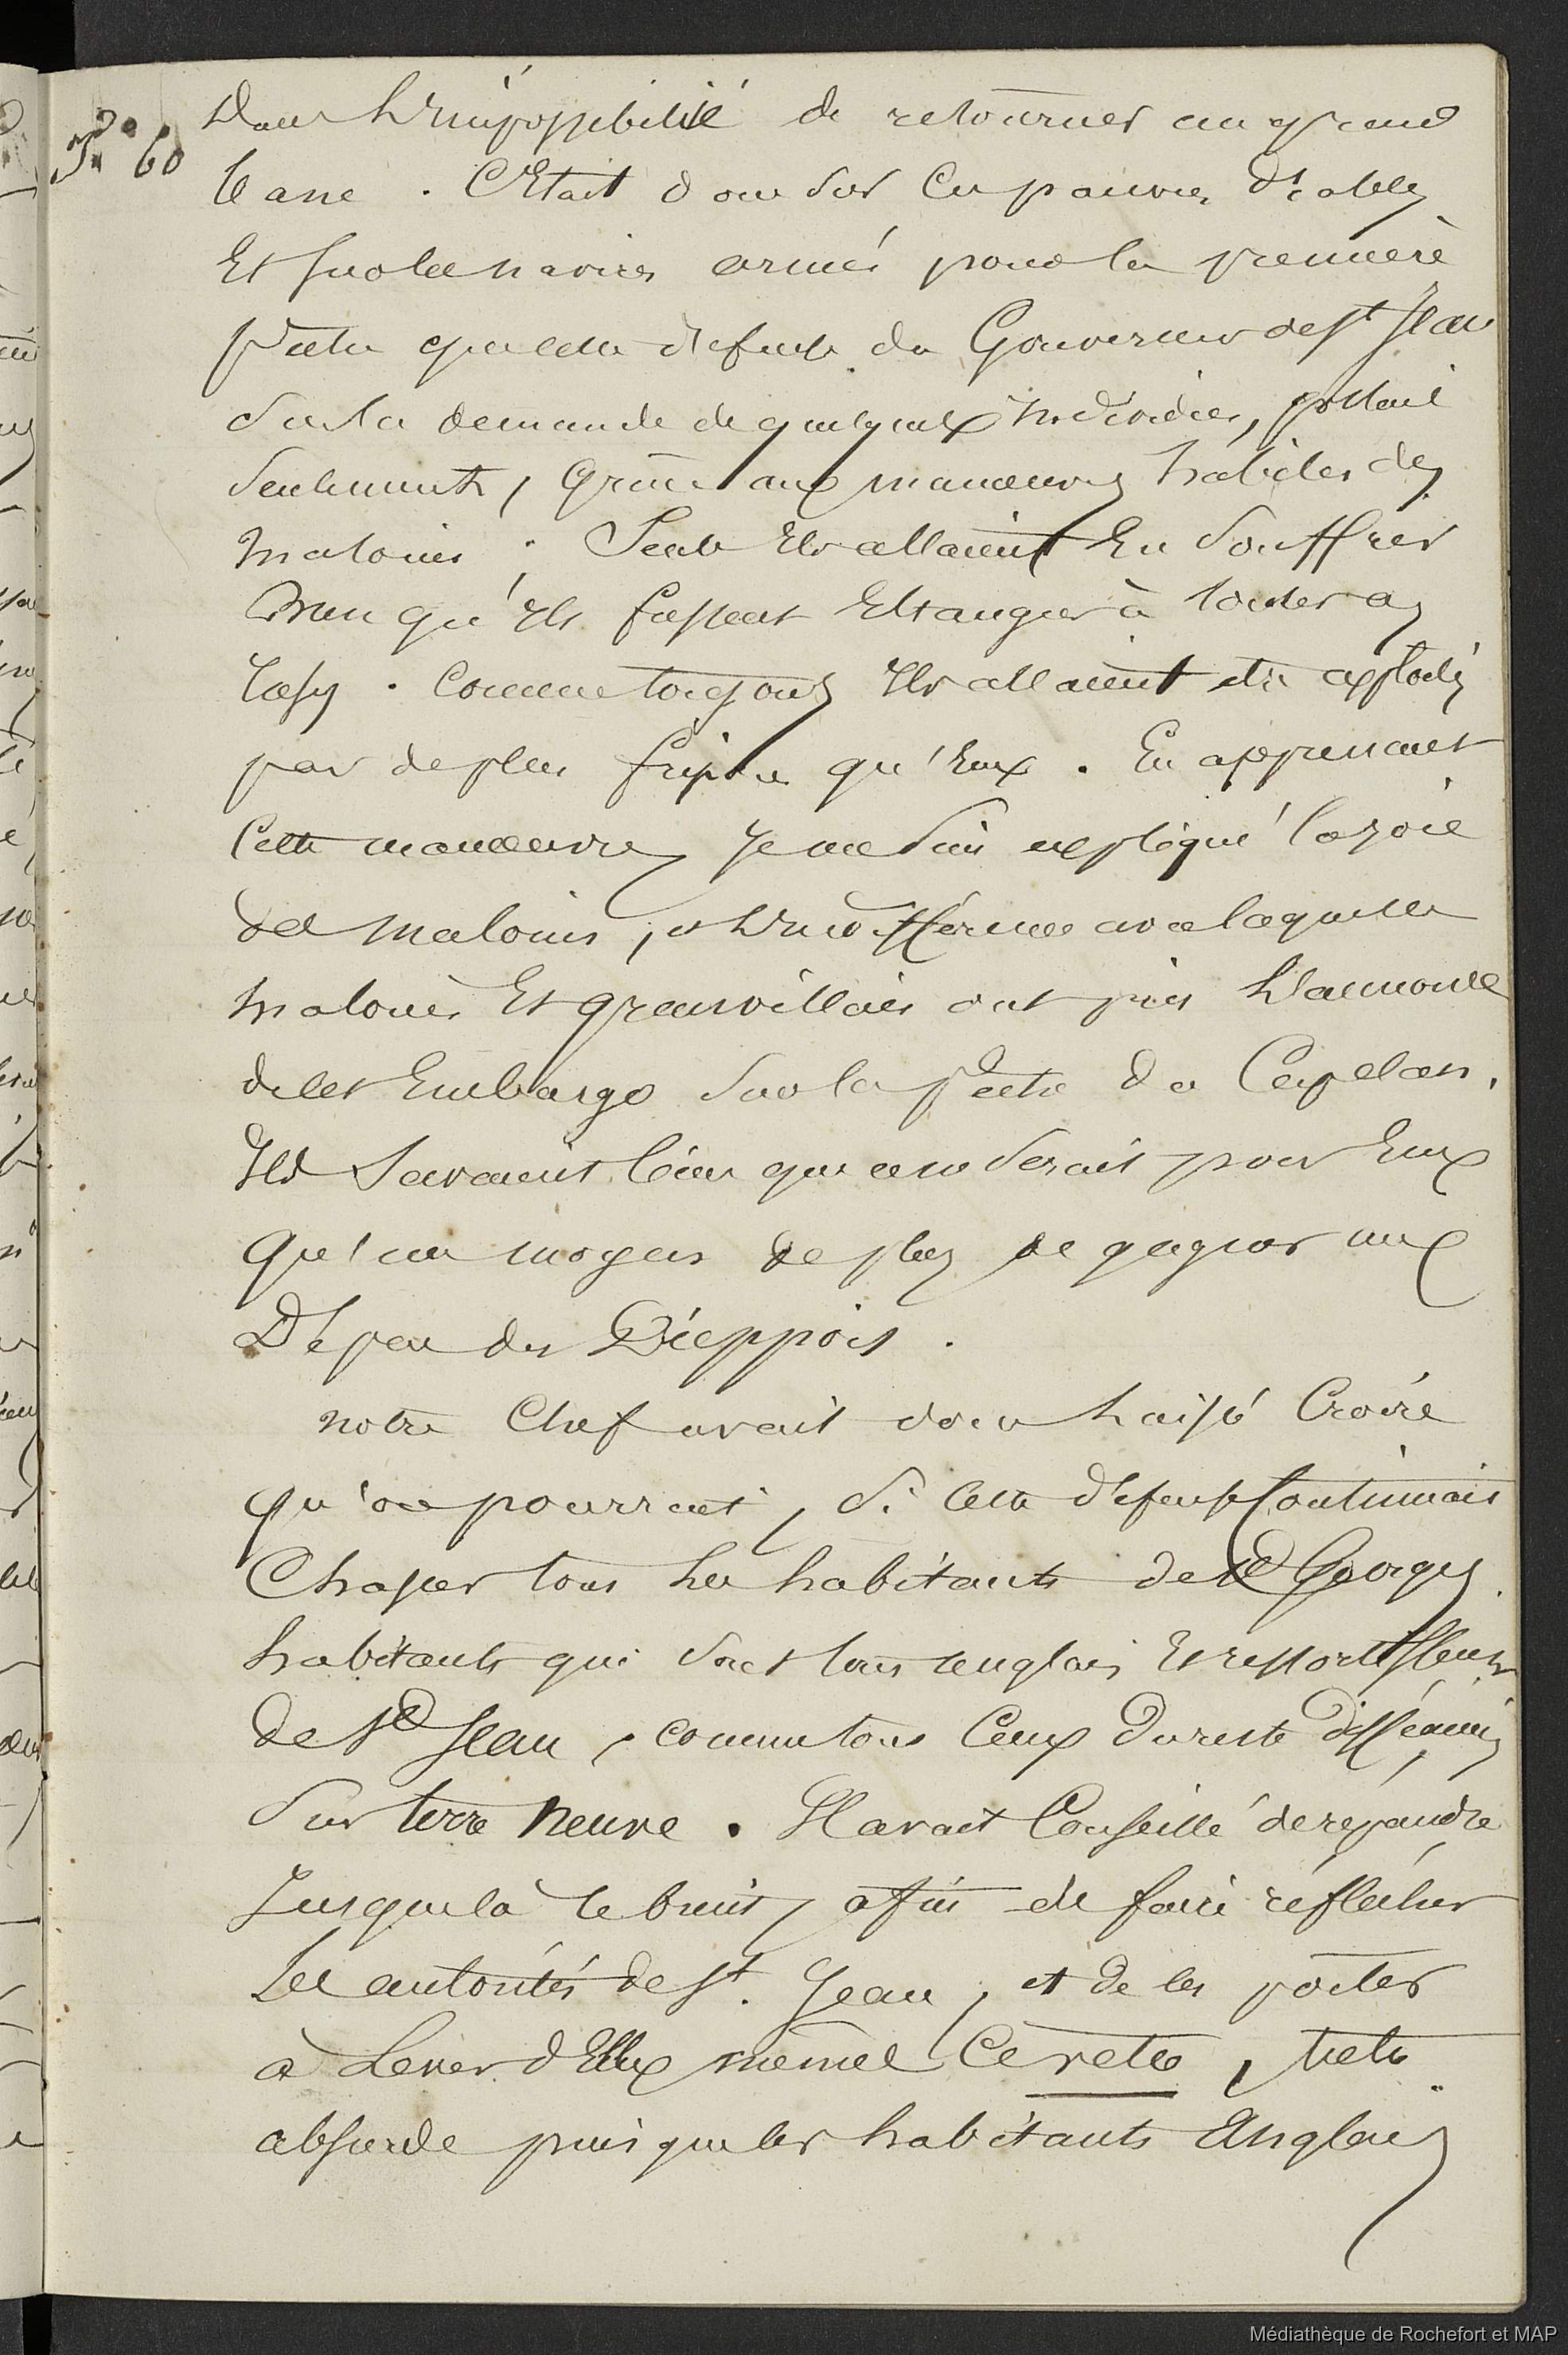 F° 60
Dans L'impossibilité de retourner au grand
banc . C'Etait donc sur Ces pauvres diables
Et sur les navires armés pour la première
pêche que cette défense du Gouverneur de St Jean
sur la demande de quelques individus, portait
seulement, Grâce aux manœuvres habiles des
malouins . Seuls Ils allaient En souffrir
Bien qu'Ils fussent Etranger à toutes ces
ruses . Comme toujours Ils allaient être exploités
par de plus fripons qu'Eux . En apprenant
Cette manœuvre, Je me suis expliqué la joie
des malouins, et L'indifférence avec laquelle
malouins Et granvillais ont pris L'annonce
de cet Embargo sur la pêche du Capelan.
Ils Savaient bien que ce ne serait pour Eux
Qu'un moyen de plus de gagner aux
Dépens des Dieppois .
notre Chef avait donc Laissé Croire
qu'on pourrait, Si Cette défense Continuait
Chasser tous Les habitants de St Georges
habitants qui sont tous anglais Et ressortissants
de St Jean, comme tous Ceux du reste disséminés
Sur terre Neuve . Il avait Conseillé de répandre
Jusque là le bruit, afin de faire réfléchir
Les autorités de St. Jean, et de les porter
à Lever d'Elles mêmes Ce veto, veto
absurde puisque les habitants Anglais
Médiathèque de Rochefort et MAP